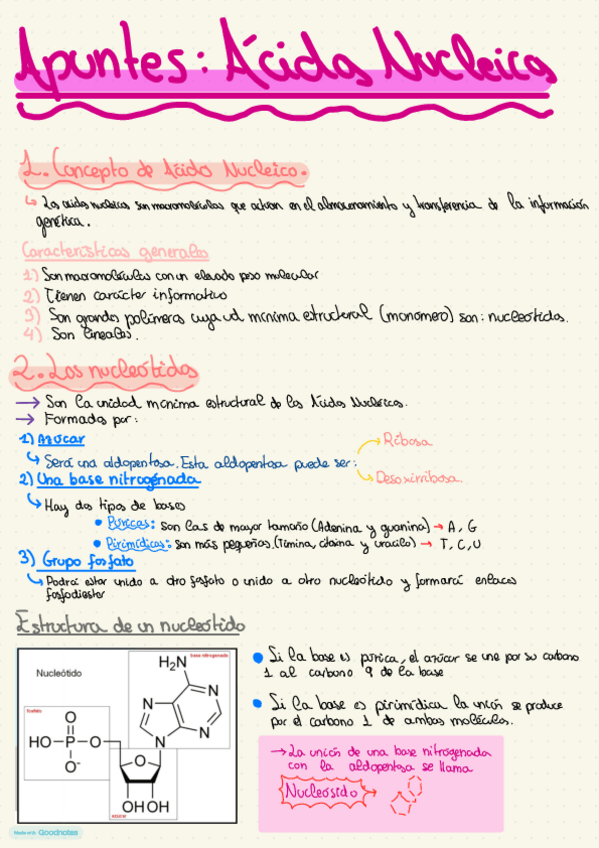 Apuntes: Ácidos Nucleicos
1. Concepto de Ácido Nucleico.
Los acidos nucleicos son macromoléculas que actúan en el almacenamiento y transferencia de la información
genética.
Características generales
1) Son macromoléculas con un elevado peso molecular
2) Tienen carácter informativo
3) Son grandes polímeros cuya ud mínima estructural (monómero) son: nucleótidos.
4) Son lineales.
2. Los nucleótidos
→ Son la unidad mínima estructural de los Ácidos Nucleicos.
→ Formados por:
1) Azúcar
Será una aldopentosa. Esta aldopentosa puede ser:
Ribosa
Desoxirribosa.
2) Una base nitrogenada
Hay dos tipos de bases
• Púricas: son las de mayor tamaño (Adenina y guanina) → A, G
• Pirimídicas: son más pequeñas. (Timina, citosina y uracilo) → T, C, U
3) Grupo fosfato
Podrá estar unido a otro fosfato o unido a otro nucleótido y formará enlaces
fosfodiester
Estructura de un nucleótido
Nucleótido
base nitrogenada
H₂N
N
N
N
N
fosfato
O
HO P O
O⁻
O
OH OH
azúcar
• Si la base es púrica, el azúcar se une por su carbono
1 al carbono 9 de la base
• Si la base es pirimídica la unión se produce
por el carbono 1 de ambas moléculas.
→ La unión de una base nitrogenada
con la aldopentosa se llama
Nucleósido →
Made with Goodnotes